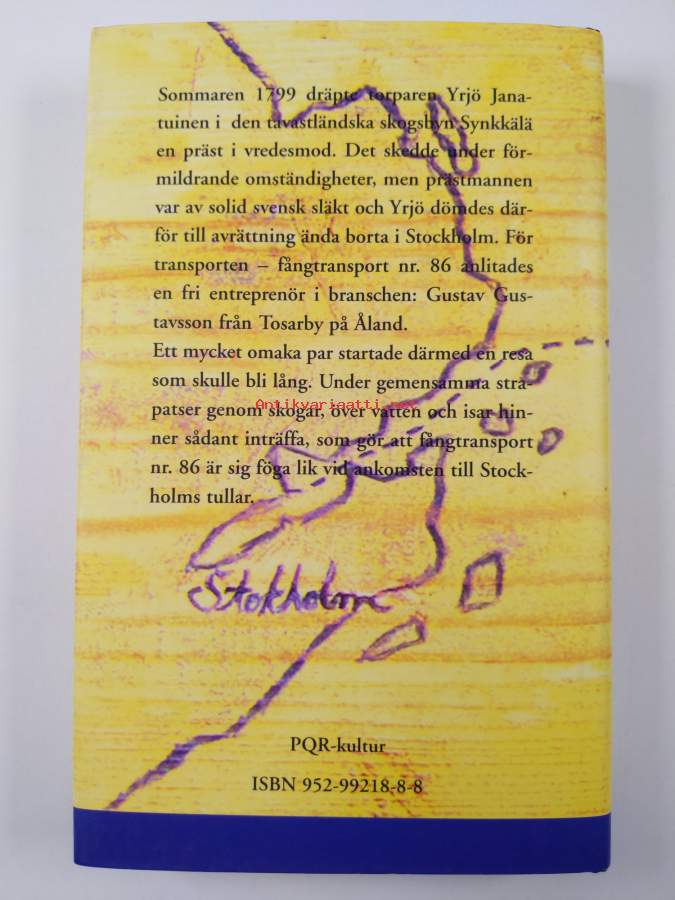 Sommaren 1799 dräpte torparen Yrjö Jana-
tuinen i den tavastländska skogsbyn Synkkälä
en präst i vredesmod. Det skedde under för-
mildrande omständigheter, men prästmannen
var av solid svensk släkt och Yrjö dömdes där-
för till avrättning ända borta i Stockholm. För
transporten – fångtransport nr. 86 anlitades
en fri entreprenör i branschen: Gustav Gus-
tavsson från Tosarby på Åland.
Ett mycket omaka par startade därmed en resa
som skulle bli lång. Under gemensamma stra-
Antikvariaatti.net
patser genom skogar, över vatten och isar hin-
ner sådant inträffa, som gör att fångtransport
nr. 86 är sig föga lik vid ankomsten till Stock-
holms tullar.
Stokholm
PQR-kultur
ISBN 952-99218-8-8